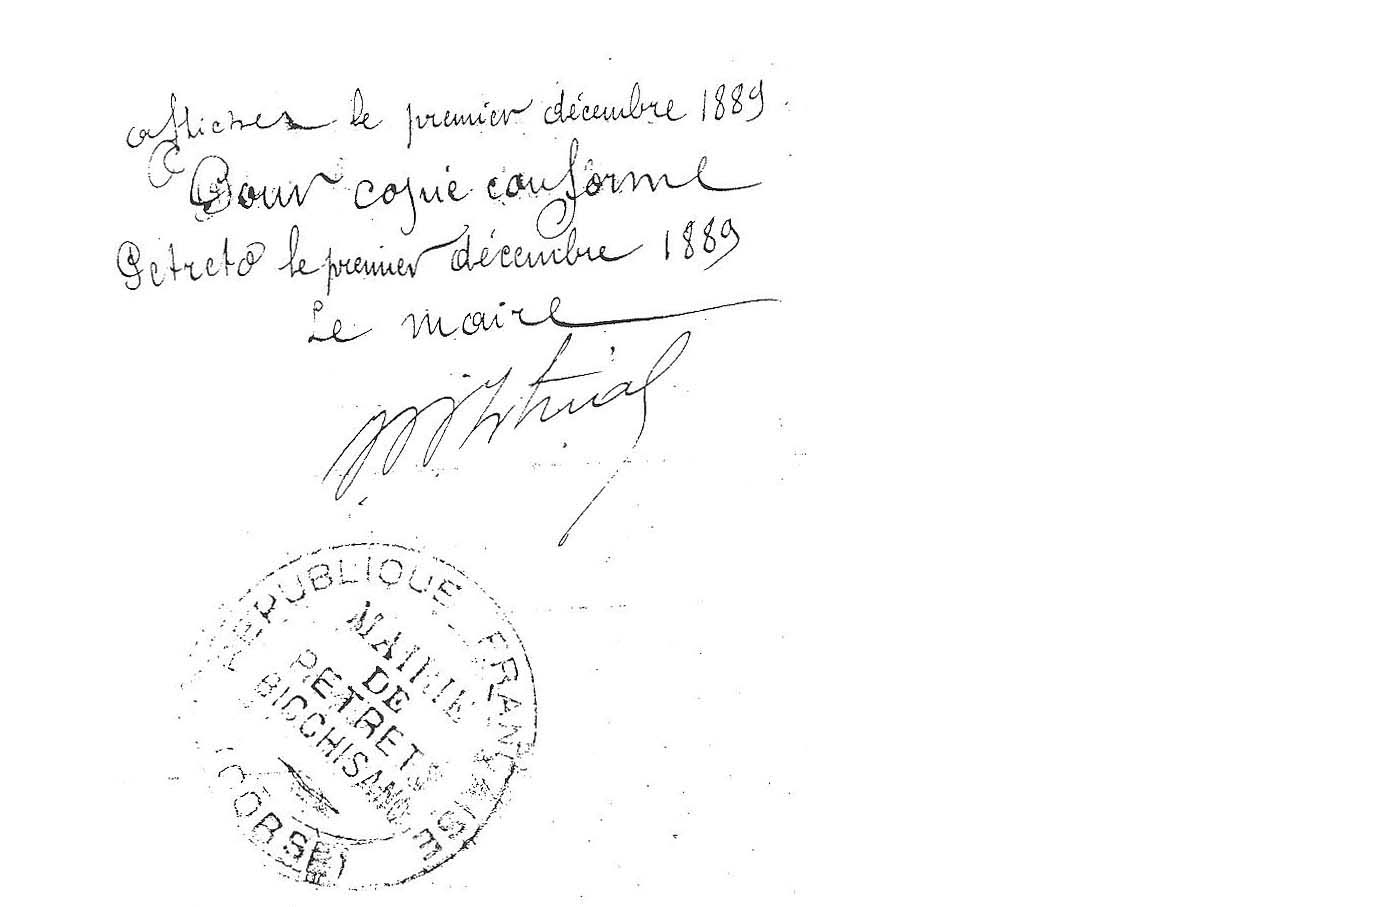 affiches le premier décembre 1889.
Pour copie conforme
Petreto le premier décembre 1889
Le maire
RÉPUBLIQUE FRANÇAISE
MAIRIE
DE
PETRETO
BICCHISANO
(CORSE)